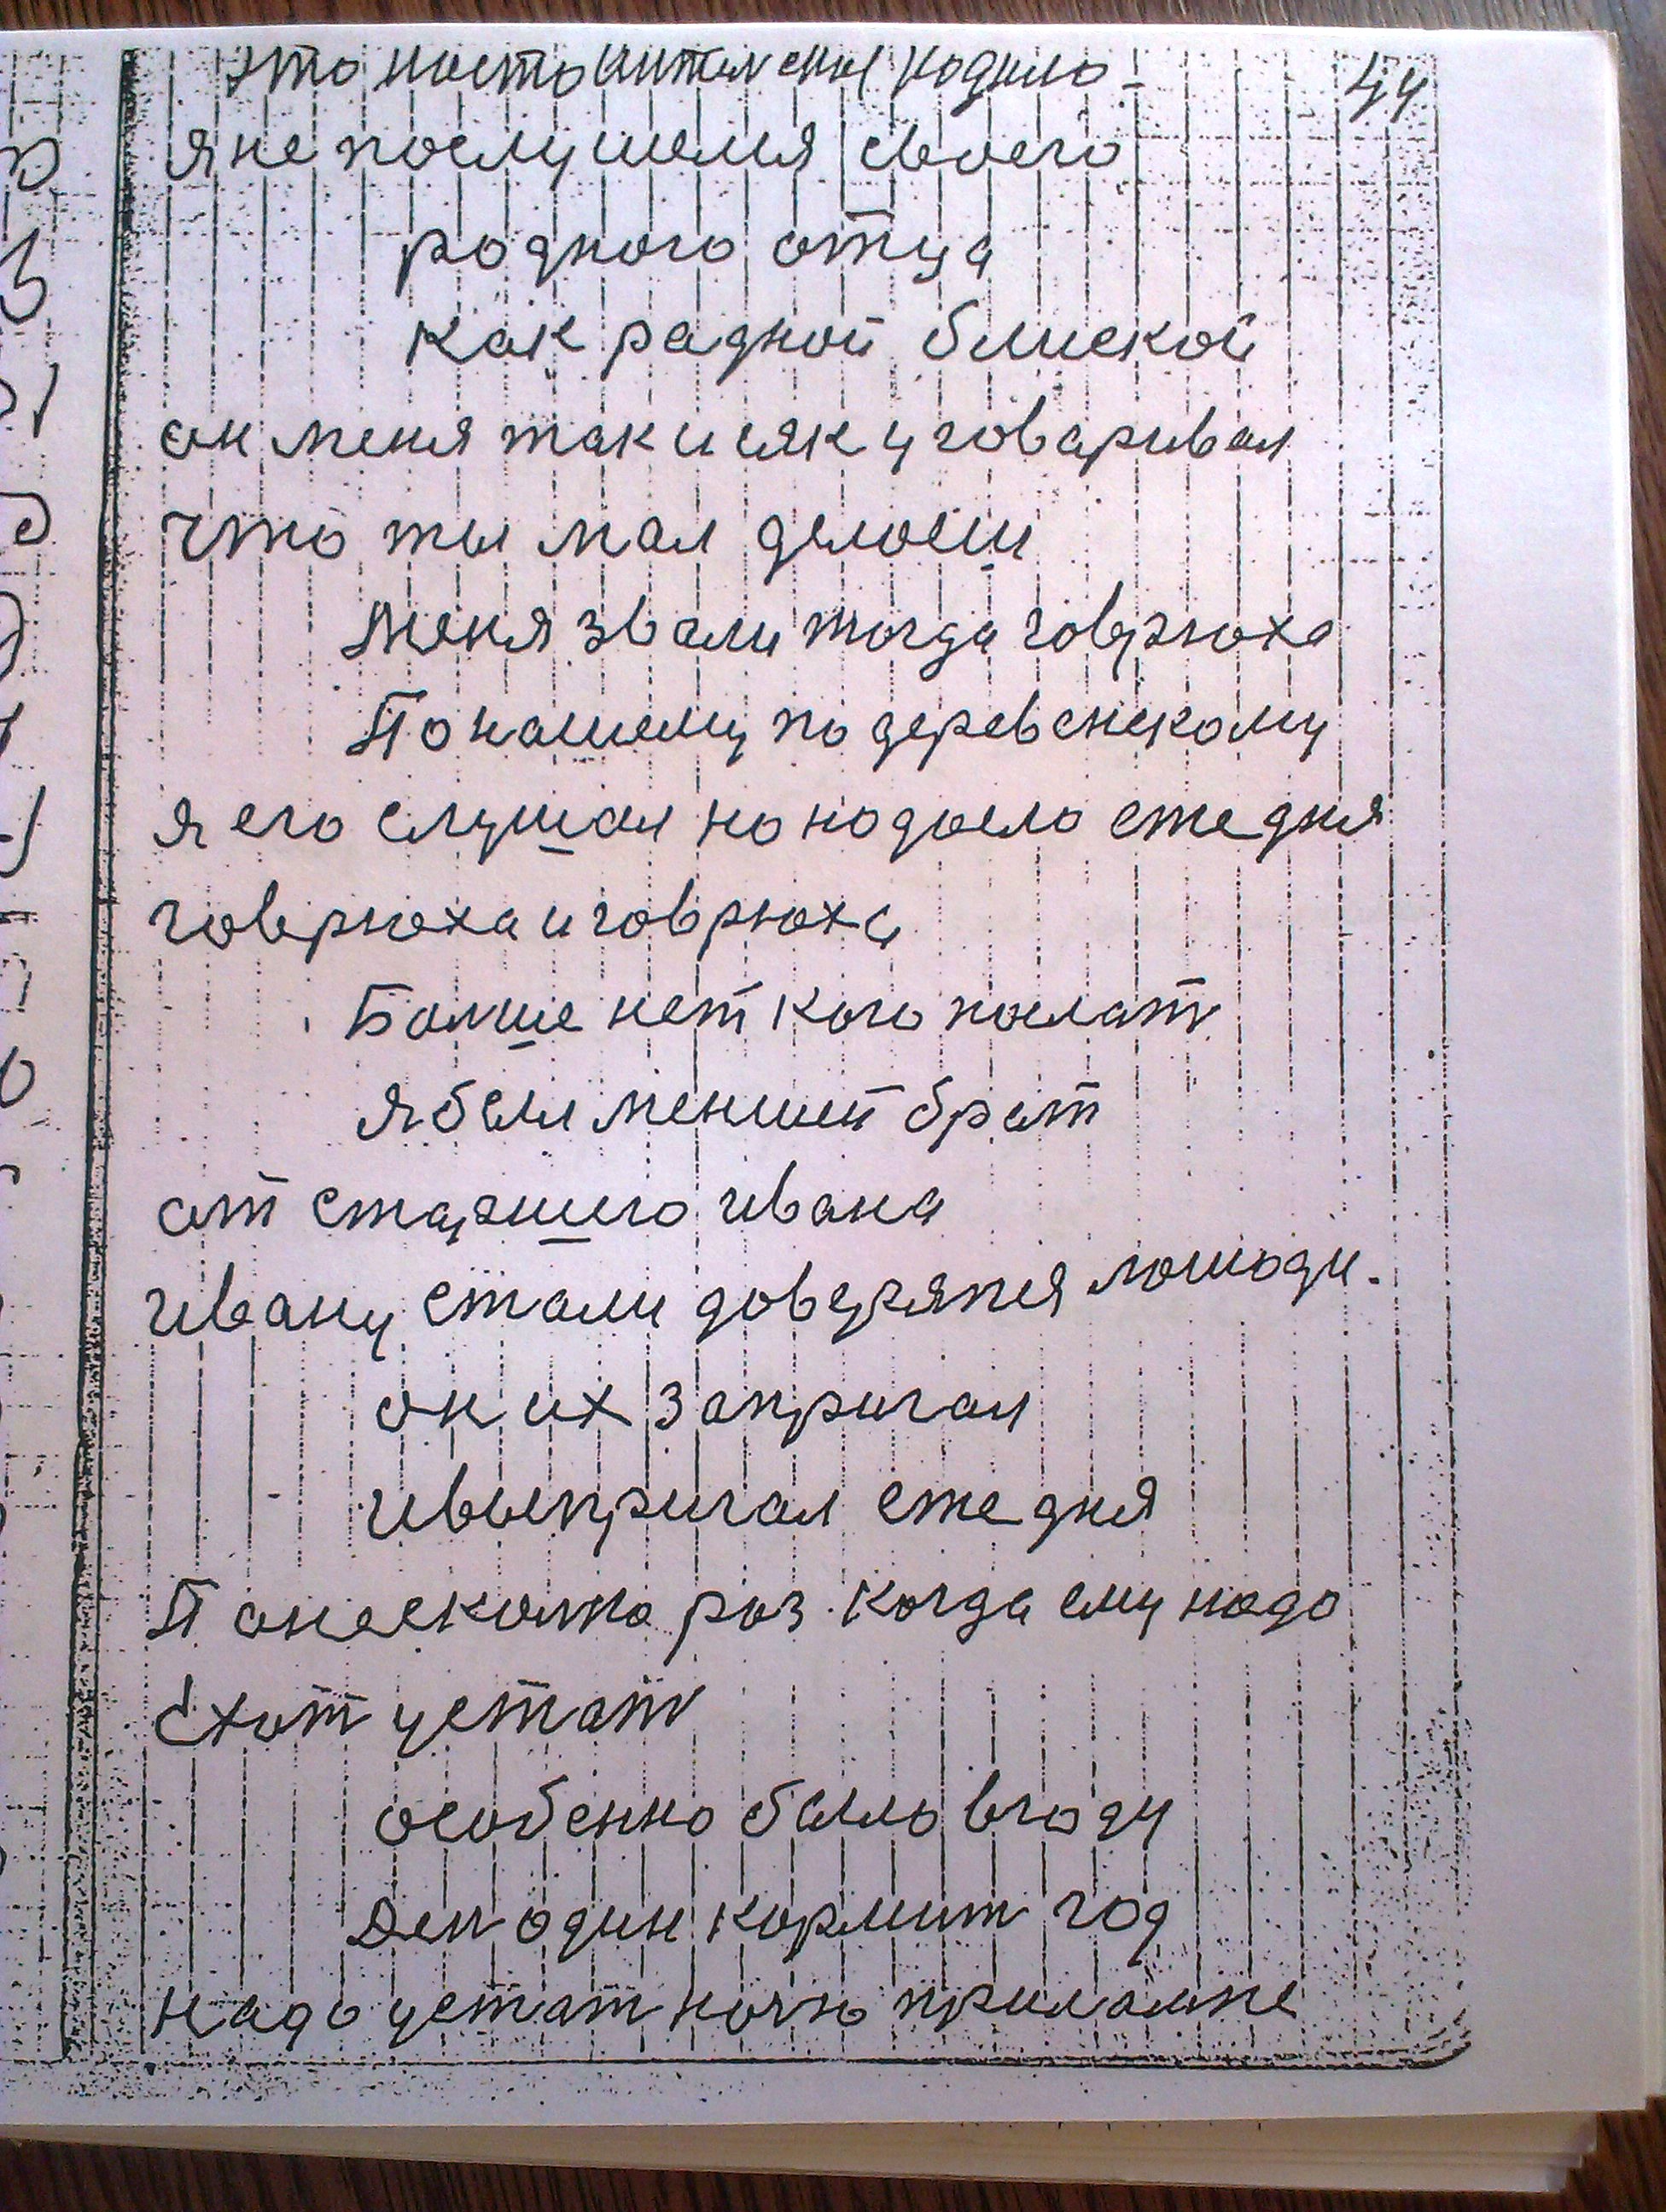 это настоятилено надило 44
я не послушался своего
родного отца
как радной блиской
он меня так и сяк уговаривал
что ты мал делоеш
Меня звали тогда говрюха
По нашему по деревенскому
я его слушал но надоело еже дня
говрюха и говрюха
Болше нет кого послат
я был менший брат
от старшиго ивана
ивану стали доверятся лошади.
он их запригал
ивыпригал еже дня
Панесколко раз когда ему надо
Ехат устат
особенно было вгоду
Ден один кормит год
надо устат ночю прилампе